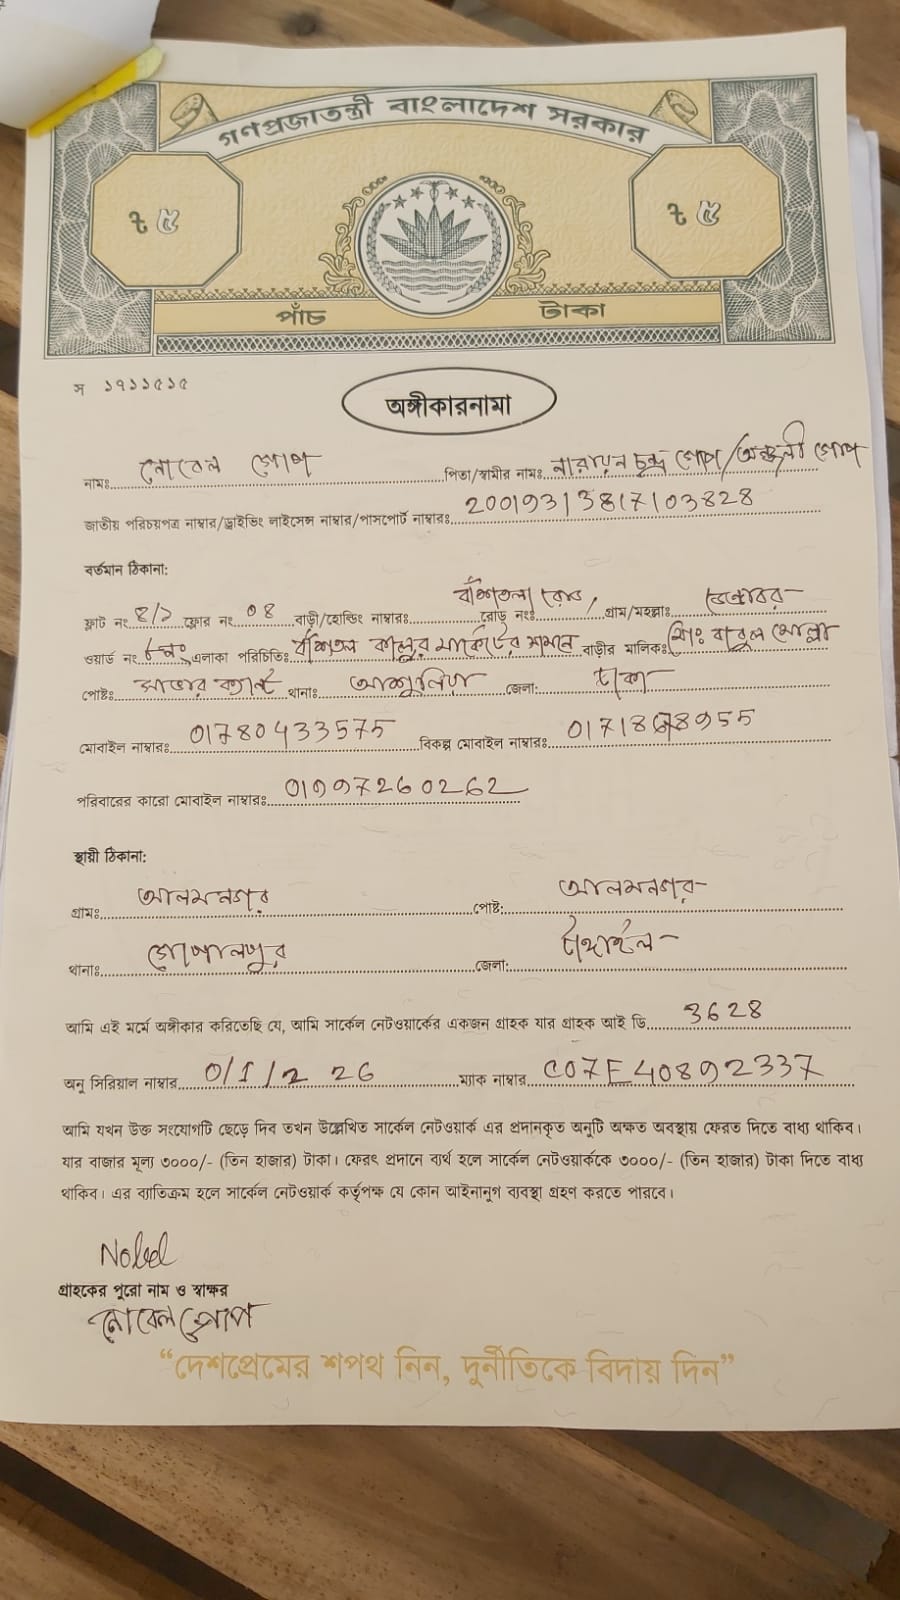 গণপ্রজাতন্ত্রী বাংলাদেশ সরকার
৳ ৫ ৳ ৫
পাঁচ টাকা
স ১৭১১৫১৫
অঙ্গীকারনামা
নামঃ নোবেল গোপ পিতা/স্বামীর নামঃ নারায়ন চন্দ্র গোপ/অঞ্জলী গোপ
জাতীয় পরিচয়পত্র নাম্বার/ড্রাইভিং লাইসেন্স নাম্বার/পাসপোর্ট নাম্বারঃ 20019313817103828
বর্তমান ঠিকানা:
ফ্লাট নং ৪/১ ফ্লোর নং ০৪ বাড়ী/হোল্ডিং নাম্বারঃ বাঁশতলা রোড, রোড নংঃ গ্রাম/মহল্লাঃ
ওয়ার্ড নং এলাকা পরিচিতিঃ বাঁশতলা কালুর মার্কেটের সামনে বাড়ীর মালিকঃ মোঃ বাবুল মোল্লা
পোষ্টঃ সাভার ক্যান্ট থানাঃ আশুলিয়া জেলা: ঢাকা
মোবাইল নাম্বারঃ 01780433575 বিকল্প মোবাইল নাম্বারঃ
পরিবারের কারো মোবাইল নাম্বারঃ 01997260262
স্থায়ী ঠিকানা:
গ্রামঃ আলমনগর পোষ্ট: আলমনগর
থানাঃ গোপালপুর জেলা: টাঙ্গাইল
আমি এই মর্মে অঙ্গীকার করিতেছি যে, আমি সার্কেল নেটওয়ার্কের একজন গ্রাহক যার গ্রাহক আই ডি 3628
অনু সিরিয়াল নাম্বার 0/1/2 26 ম্যাক নাম্বার C07E40892337
আমি যখন উক্ত সংযোগটি ছেড়ে দিব তখন উল্লেখিত সার্কেল নেটওয়ার্ক এর প্রদানকৃত অনুটি অক্ষত অবস্থায় ফেরত দিতে বাধ্য থাকিব।
যার বাজার মূল্য ৩০০০/- (তিন হাজার) টাকা। ফেরৎ প্রদানে ব্যর্থ হলে সার্কেল নেটওয়ার্ককে ৩০০০/- (তিন হাজার) টাকা দিতে বাধ্য
থাকিব। এর ব্যতিক্রম হলে সার্কেল নেটওয়ার্ক কর্তৃপক্ষ যে কোন আইনানুগ ব্যবস্থা গ্রহণ করতে পারবে।
Nobel
গ্রাহকের পুরো নাম ও স্বাক্ষর
নোবেল গোপ
“দেশপ্রেমের শপথ নিন, দুর্নীতিকে বিদায় দিন”